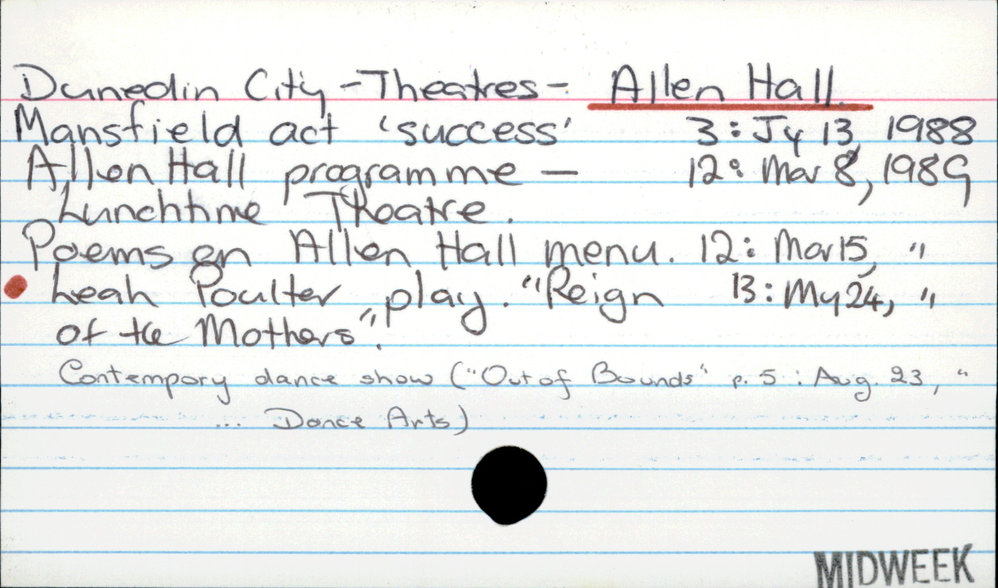 Dunedin City - Theatres - Allen Hall.
Mansfield act 'success' 3: Jy 13, 1988
Allen Hall programme — 12: Mar 8, 1989
Lunchtime Theatre.
Poems on Allen Hall menu. 12: Mar 15, "
Leah Poulter play. "Reign 13: My 24, "
of the Mothers".
Contempory dance show ("Out of Bounds" p. 5 : Aug. 23, "
... Dance Arts)
MIDWEEK